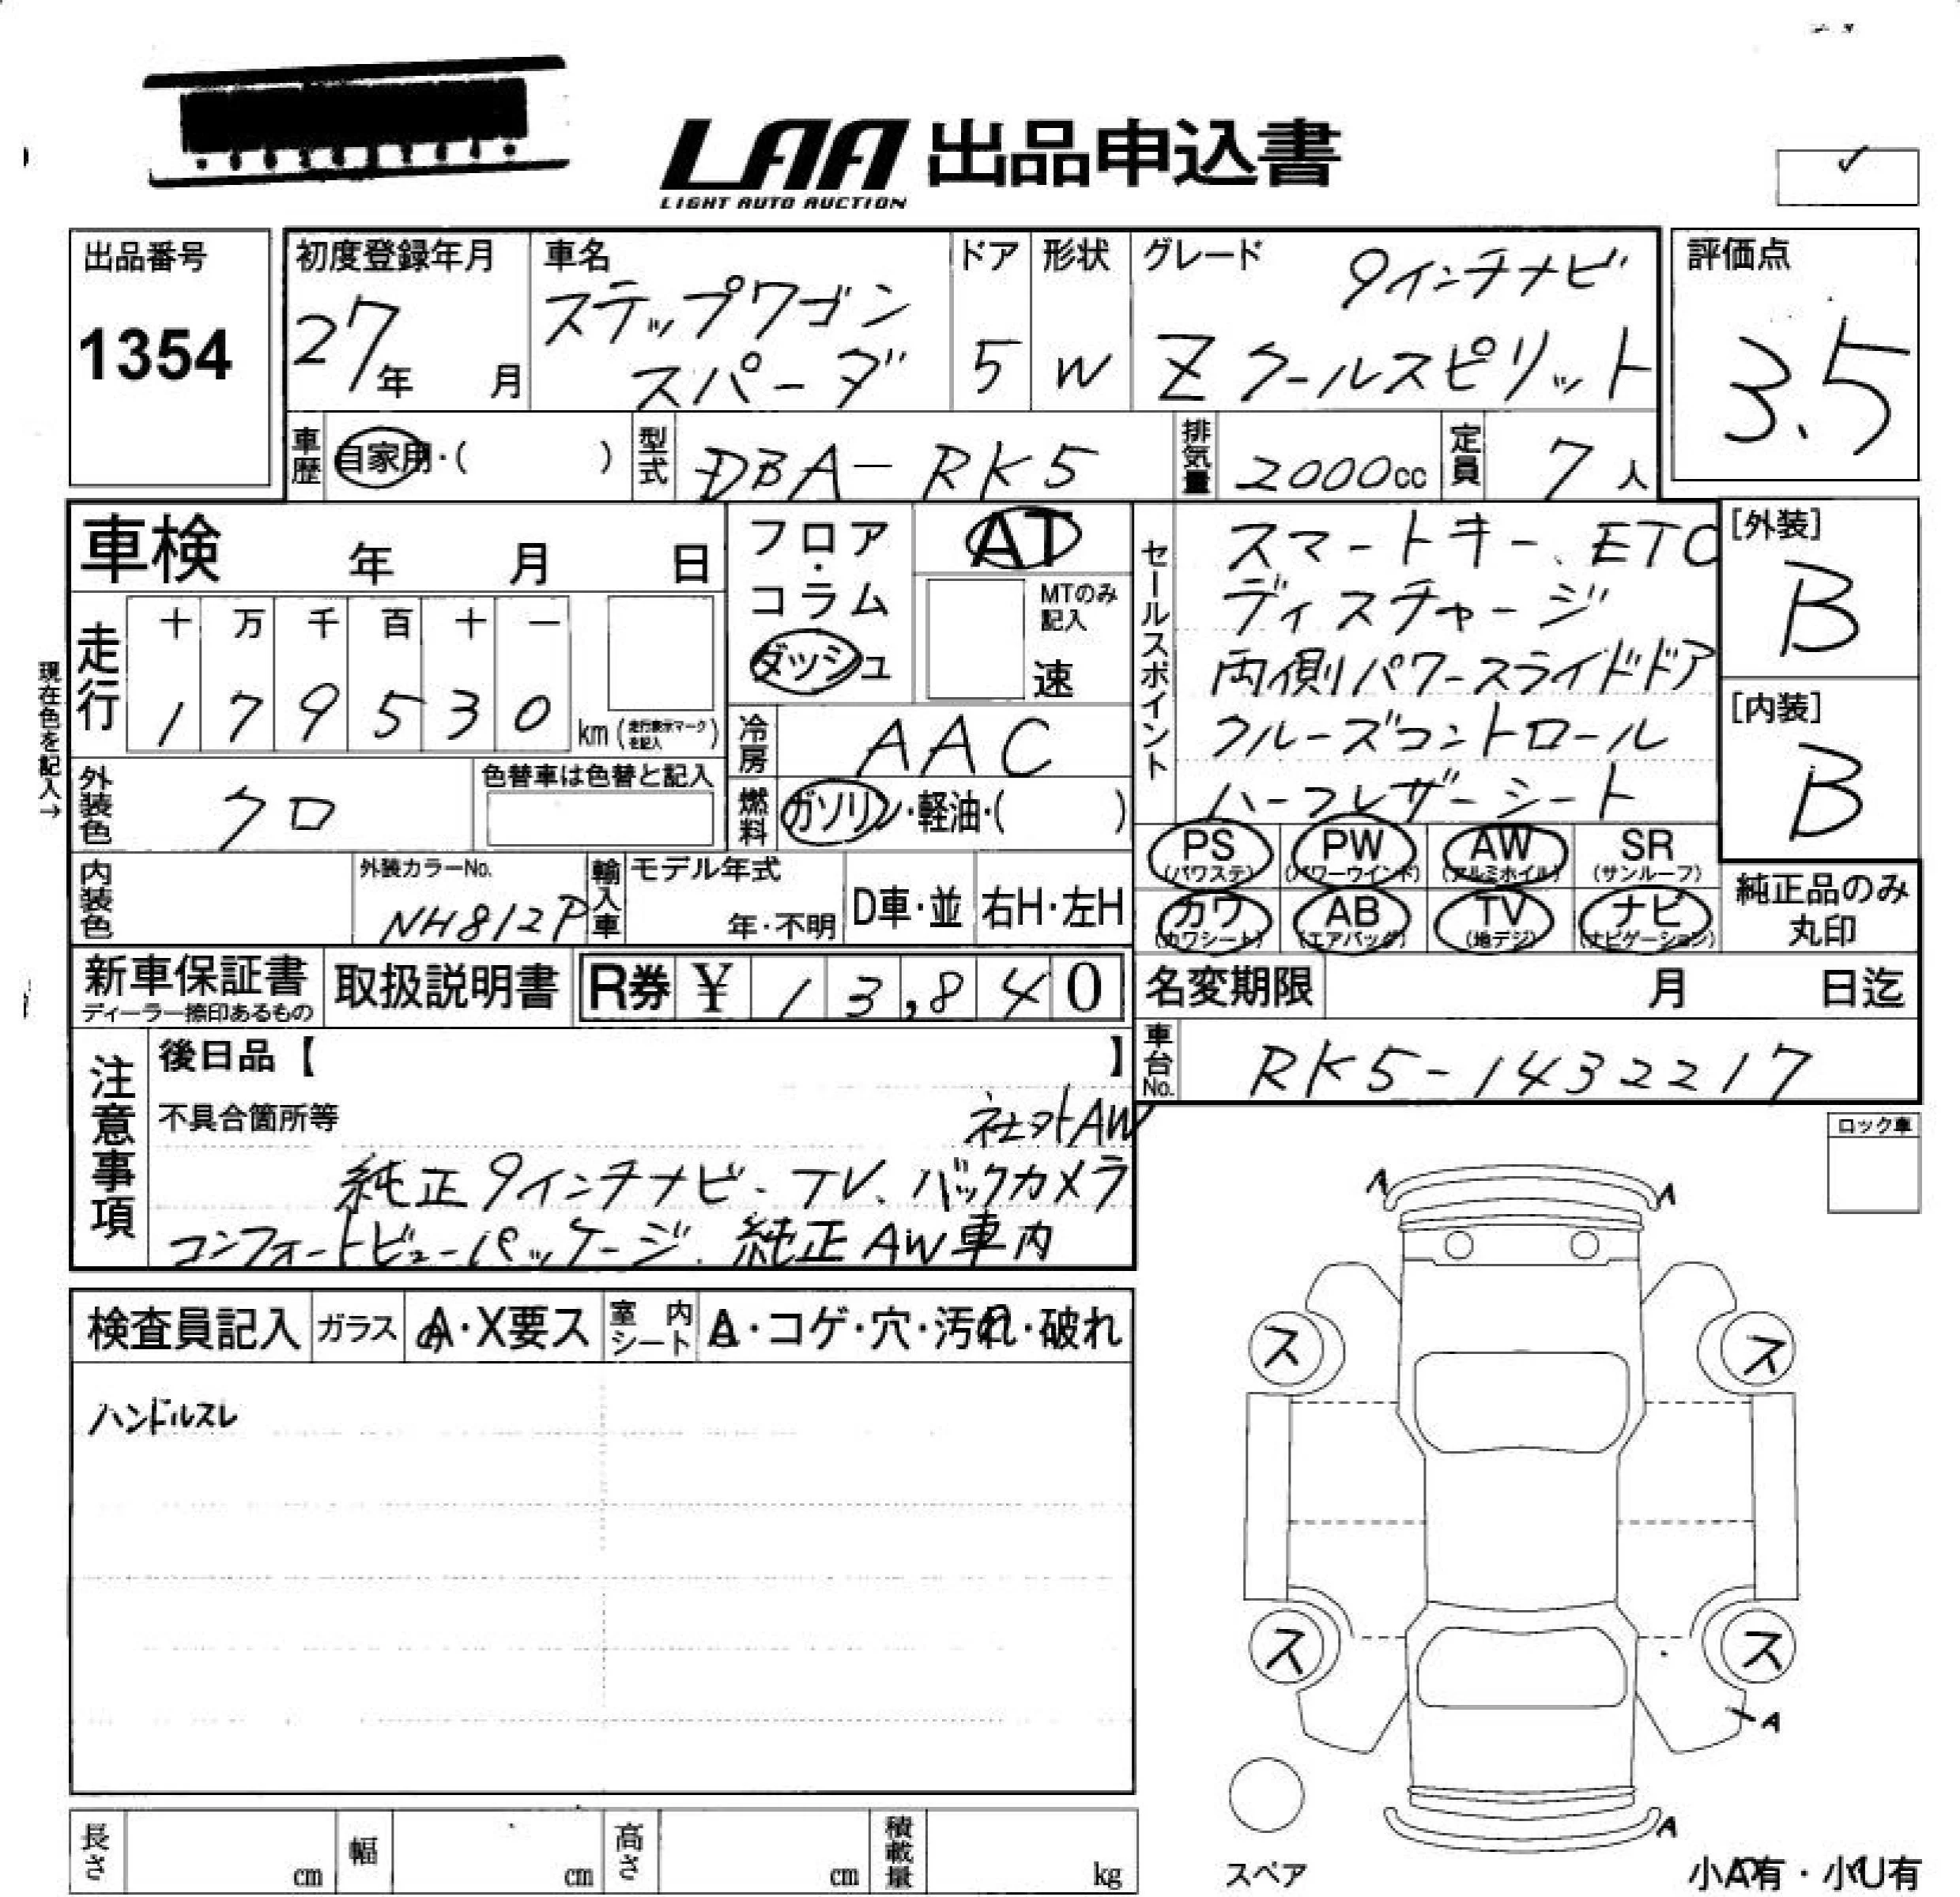 LAA 出品申込書
LIGHT AUTO AUCTION
出品番号
1354
初度登録年月
27年 月
車名
ステップワゴン
スパーダ
ドア
5
形状
W
グレード
9インチナビ
Z クールスピリット
評価点
3.5
車歴
自家用・( )
型式
DBA-RK5
排気量
2000cc
定員
7人
車検 年 月 日
フロア・コラム
ダッシュ
AT
MTのみ記入
速
セールスポイント
スマートキー、ETC
ディスチャージ
両側パワースライドドア
クルーズコントロール
ハーフレザーシート
[外装]
B
[内装]
B
現在色を記入→
走行
十 万 千 百 十 一
1 7 9 5 3 0
km (走行表示マークを記入)
冷房
AAC
外装色
クロ
色替車は色替と記入
燃料
ガソリン・軽油・( )
PS (パワステ)
PW (パワーウインド)
AW (アルミホイル)
SR (サンルーフ)
カワ (カワシート)
AB (エアバッグ)
TV (地デジ)
ナビ (ナビゲーション)
純正品のみ
丸印
内装色
外装カラーNo.
NH812P
輸入車
モデル年式
年・不明
D車・並
右H・左H
新車保証書
ディーラー捺印あるもの
取扱説明書
R券 ¥ 13,840
名変期限 月 日迄
車台No.
RK5-1432217
注意事項
後日品【 】
不具合箇所等
社外AW
純正9インチナビ、TV、バックカメラ
コンフォートビューパッケージ、純正AW車内
ロック車
検査員記入
ガラス
A・X要ス
室内シート
A・コゲ・穴・汚れ・破れ
ハンドルスレ
A A
ス ス
ス ス
A
A
スペア
小A有・小U有
長さ cm
幅 cm
高さ cm
積載量 kg